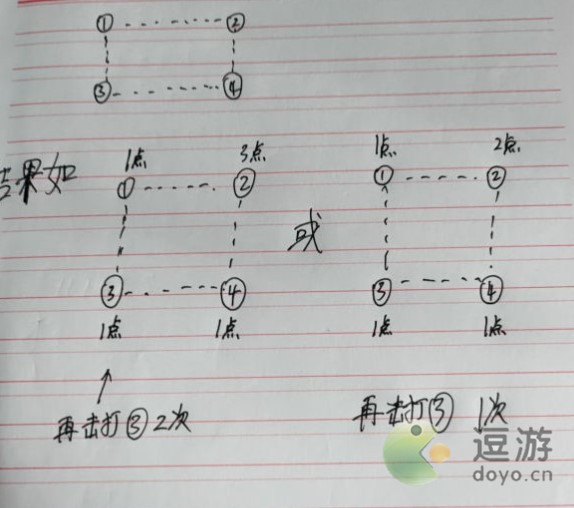 ① ②
③ ④
结果如
1点 3点
① ②
③ ④
1点 1点
再击打③2次
或
1点 2点
① ②
③ ④
1点 1点
再击打③ 1次
逗游
doyo.cn